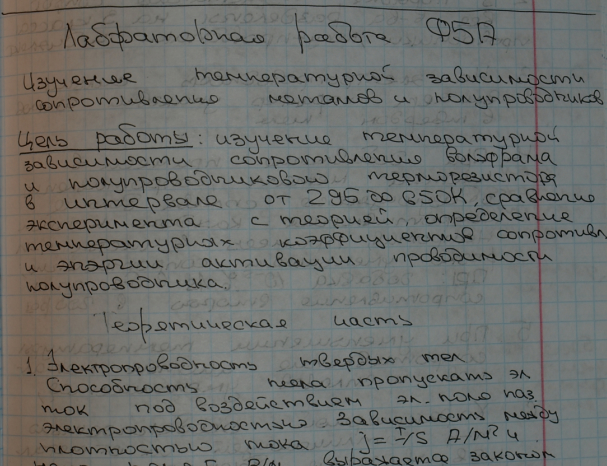 Лабораторная работа Ф5А
Изучение температурной зависимости
сопротивление металов и полупроводников
Цель работы: изучение температурной
зависимости сопротивление вольфрама
и полупроводникового терморезистора
в интервале от 295 до 650К, сравнение
эксперимента с теорией определение
температурных коэффициентов сопротивл
и энэргии активации проводимости
полупроводника.
Теоретическая часть
1. Электропроводность твердых тел
Способность тела пропускать эл.
ток под воздействием эл. поля наз.
электропроводностью Зависимость между
плотностью тока j=I/S А/м² и
выражается законом